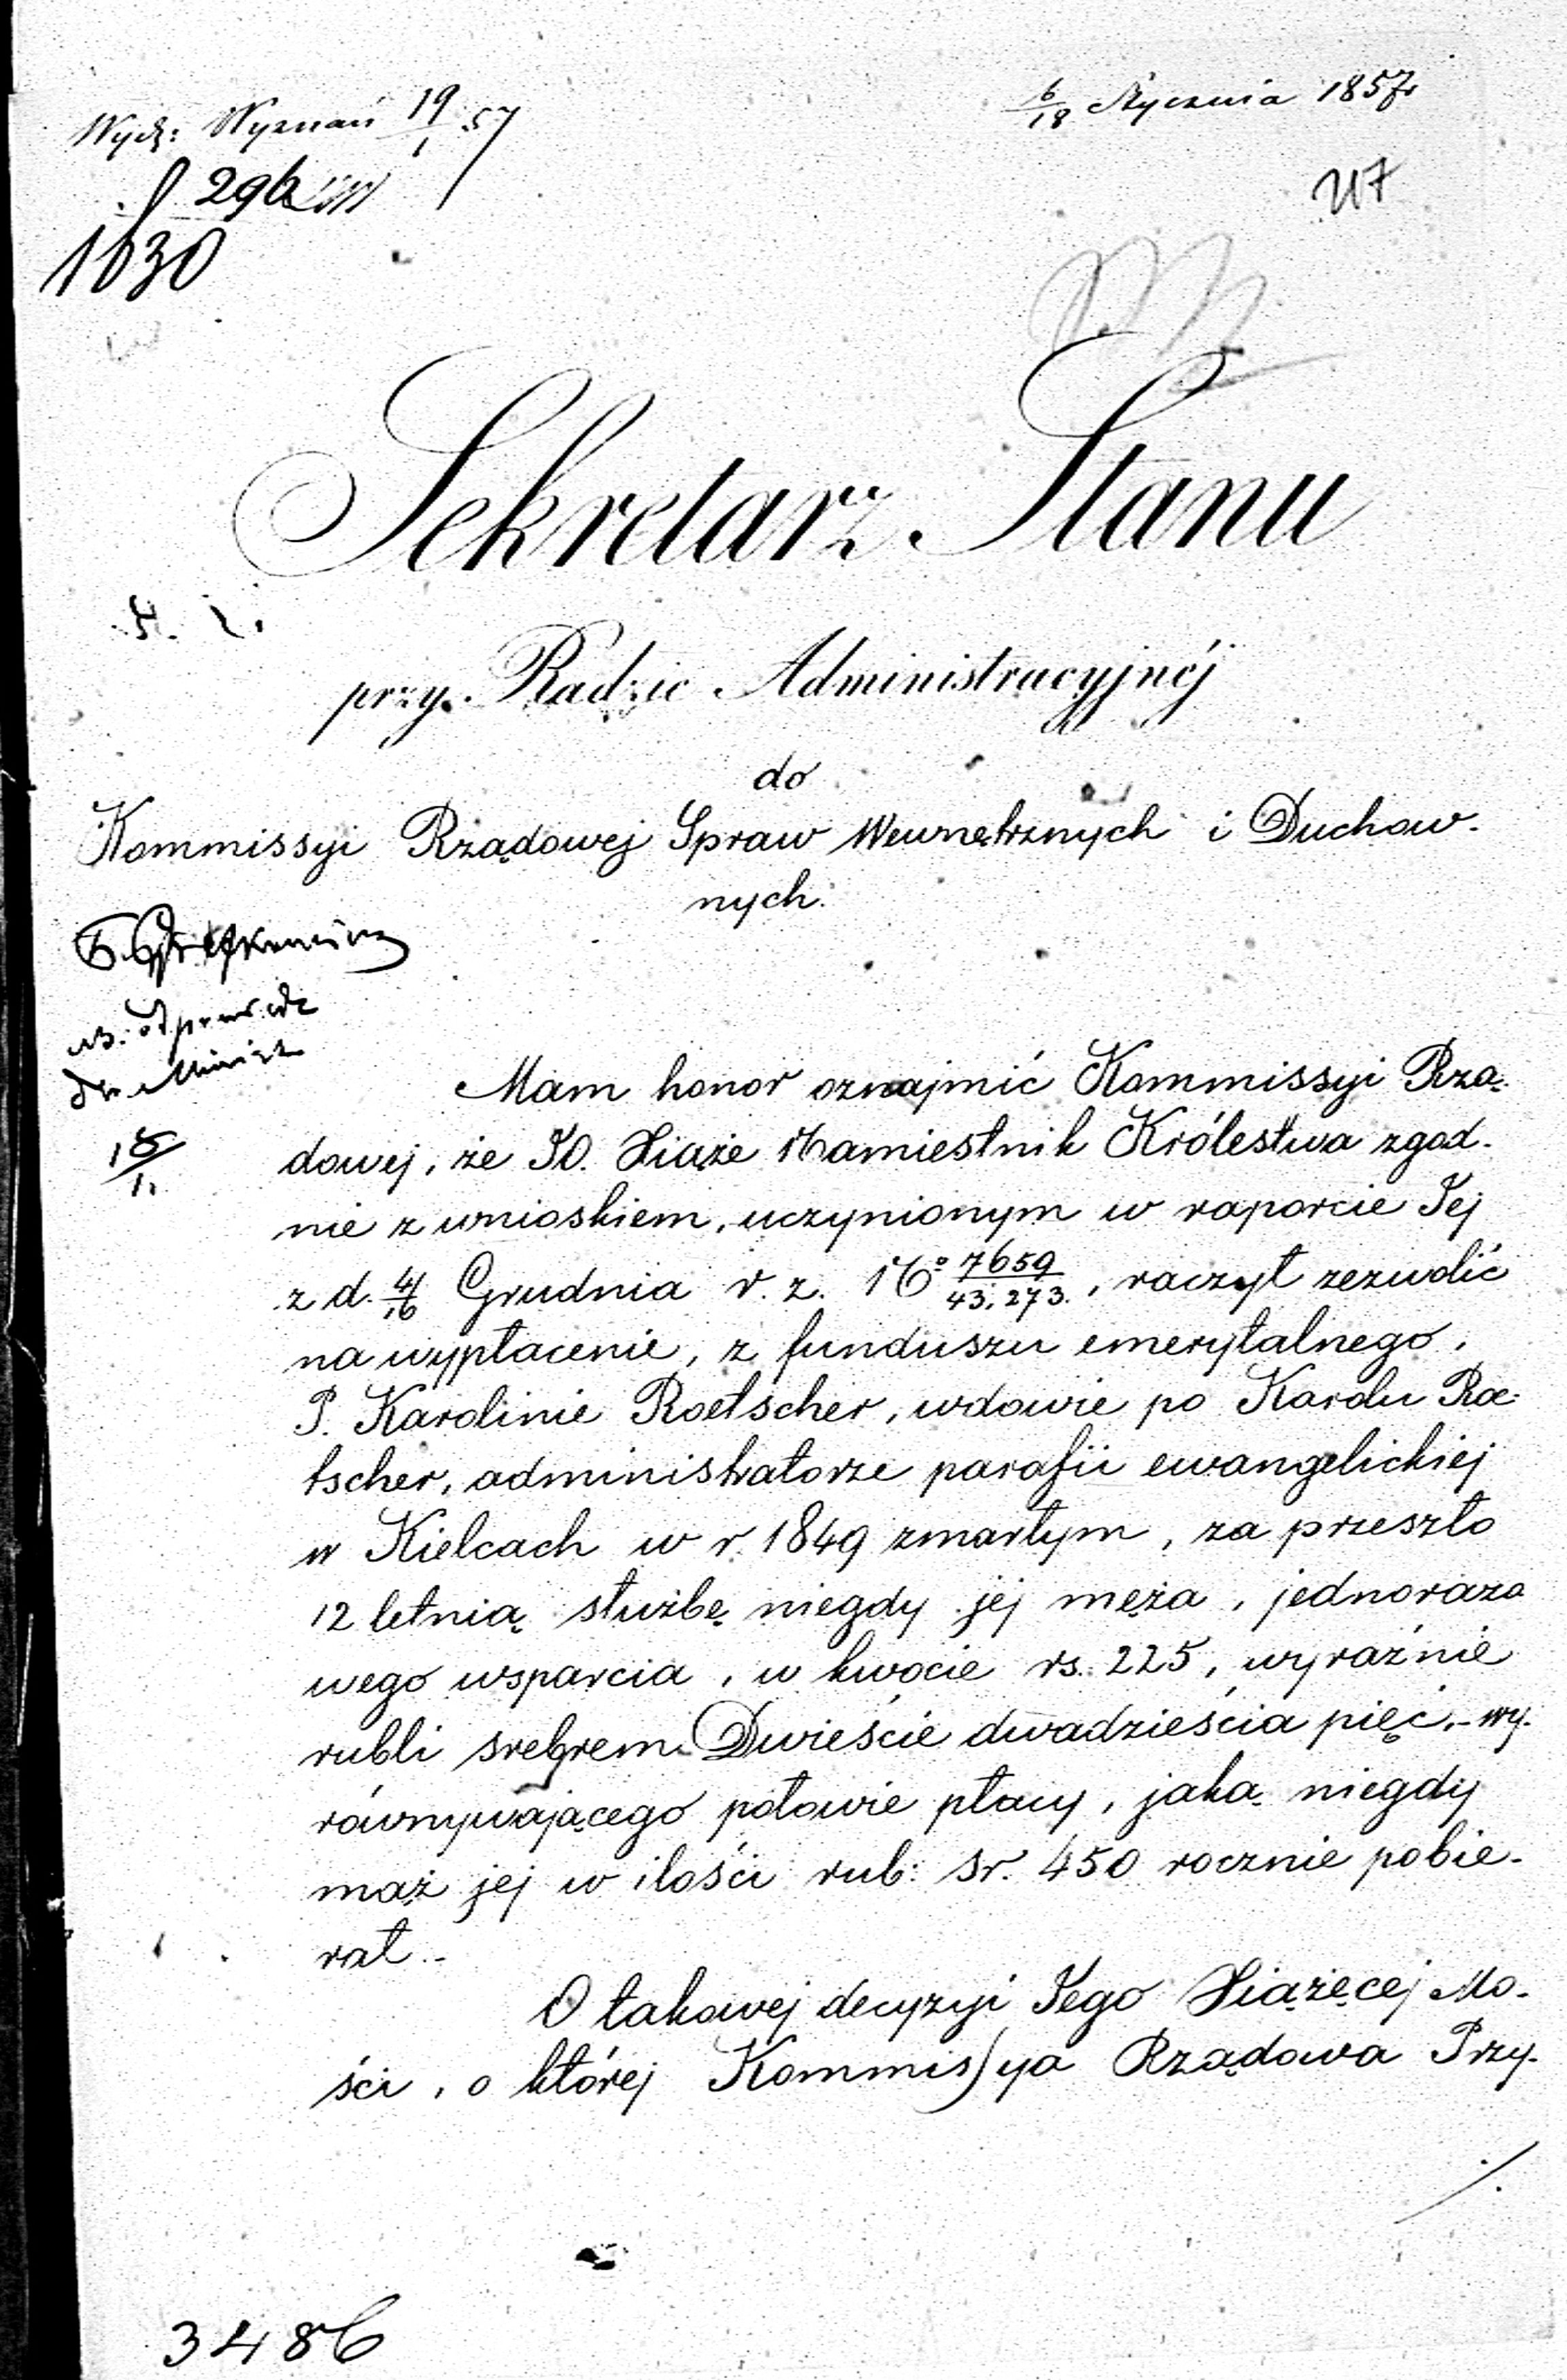 Wydz: Wyznań 19/1 57
6/18 Stycznia 1857
296
117
1030
Sekretarz Stanu
przy Radzie Administracyjnéj
do
Kommissyi Rządowej Spraw Wewnętrznych i Duchow-
nych.
Mam honor oznajmić Kommissyi Rzą-
dowej, że JO. Xiąże Namiestnik Królestwa zgod-
nie z wnioskiem, uczynionym w raporcie Jej
z d. 4/16 Grudnia r. z. No 7659/43,273, raczył zezwolić
na wypłacenie, z funduszu emerytalnego,
P. Karolinie Roetscher, wdowie po Karolu Roe-
tscher, administratorze parafii ewangelickiej
w Kielcach w r. 1849 zmarłym, za przeszło
12 letnią służbę niegdy jej męża, jednorazo
wego wsparcia, w kwocie rs. 225, wyraźnie
rubli srebrem Dwieście dwadzieścia pięć,- wy-
równywającego połowie płacy, jaką niegdy
mąż jej w ilości rub: sr. 450 rocznie pobie-
rał.-
O takowej decyzyi Jego Xiążęcej Mo-
ści, o której Kommissya Rządowa Przy-
./.
3486